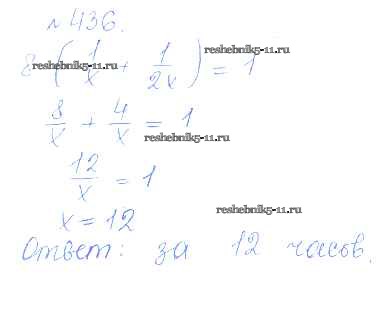 №436.
8(1/x + 1/2x) = 1
reshebnik5-11.ru
reshebnik5-11.ru
8/x + 4/x = 1
reshebnik5-11.ru
12/x = 1
x = 12
reshebnik5-11.ru
Ответ: за 12 часов.